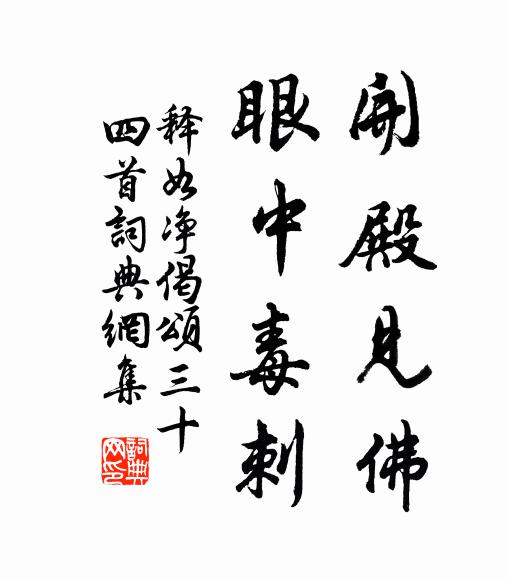 開殿見佛
眼中毒刺
释如净偈頌三十
四首詞典網集
詞典
网印